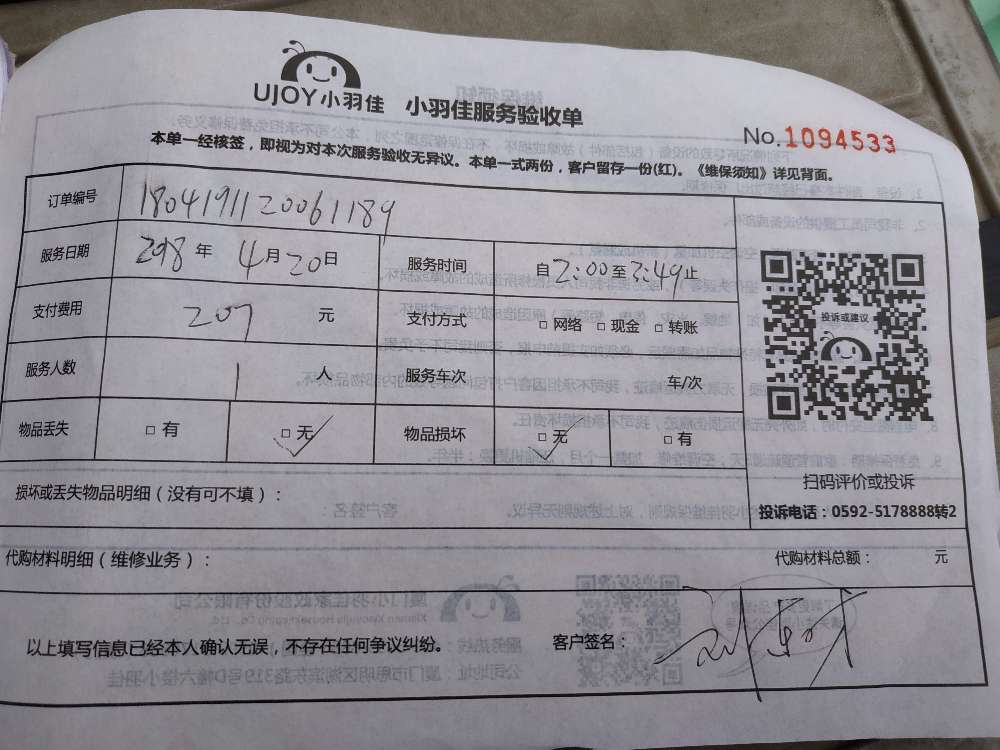 UJOY小羽佳 小羽佳服务验收单
No.1094533
本单一经核签，即视为对本次服务验收无异议。本单一式两份，客户留存一份(红)。《维保须知》详见背面。
订单编号 1804191120061189
服务日期 2018年4月20日 服务时间 自2:00至2:49止
支付费用 207 元 支付方式 □ 网络 □ 现金 □ 转账
服务人数 1 人 服务车次 车/次
物品丢失 □ 有 □ 无 物品损坏 □ 无 □ 有
投诉或建议
扫码评价或投诉
投诉电话：0592-5178888转2
损坏或丢失物品明细（没有可不填）：
代购材料明细（维修业务）： 代购材料总额： 元
以上填写信息已经本人确认无误，不存在任何争议纠纷。 客户签名：